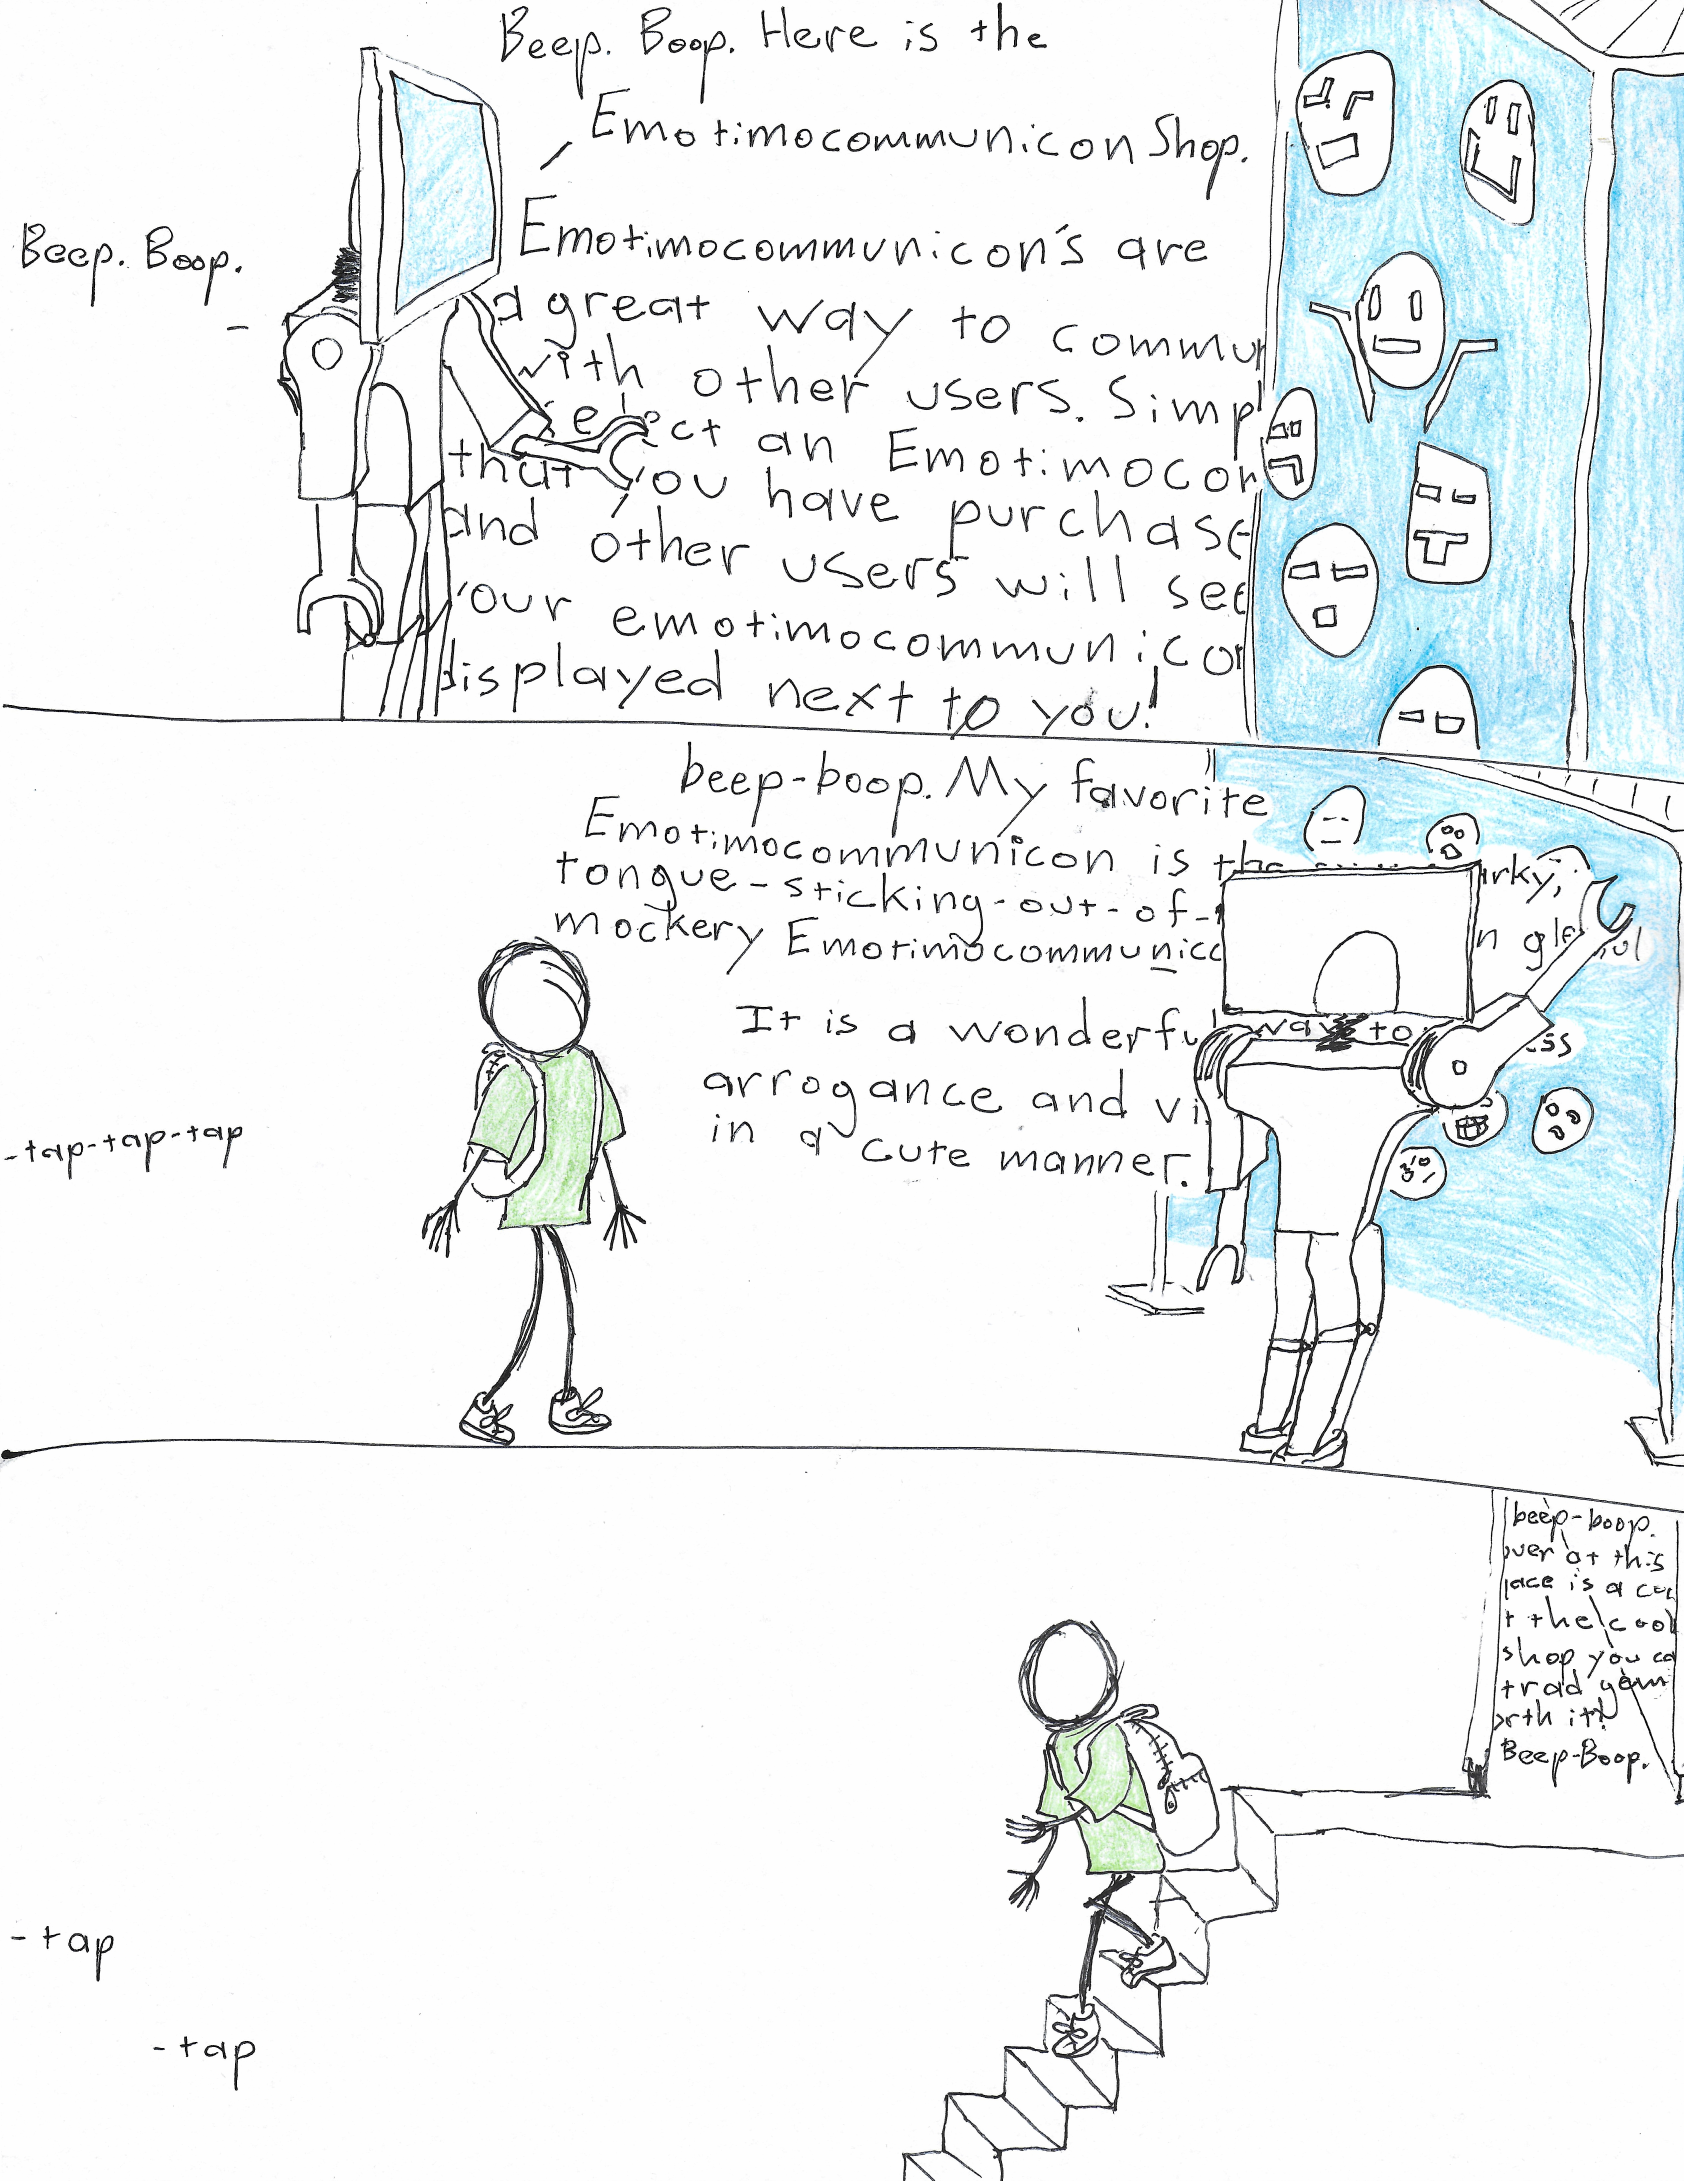 Beep. Boop. Here is the
Emotimocommunicon Shop.
Beep. Boop.
Emotimocommunicon's are
a great way to commu
with other users. Simp
select an Emotimocom
that you have purchase
and other users will see
your emotimocommunicon
displayed next to you!
beep-boop. My favorite
Emotimocommunicon is the rky,
tongue-sticking-out-of- n gleeful
mockery Emotimocommunico
It is a wonderful way to ess
arrogance and vi
in a cute manner.
-tap-tap-tap
beep-boop.
over at this
lace is a coo
t the cool
shop you ca
trad your
orth it!
Beep-Boop.
-tap
-tap